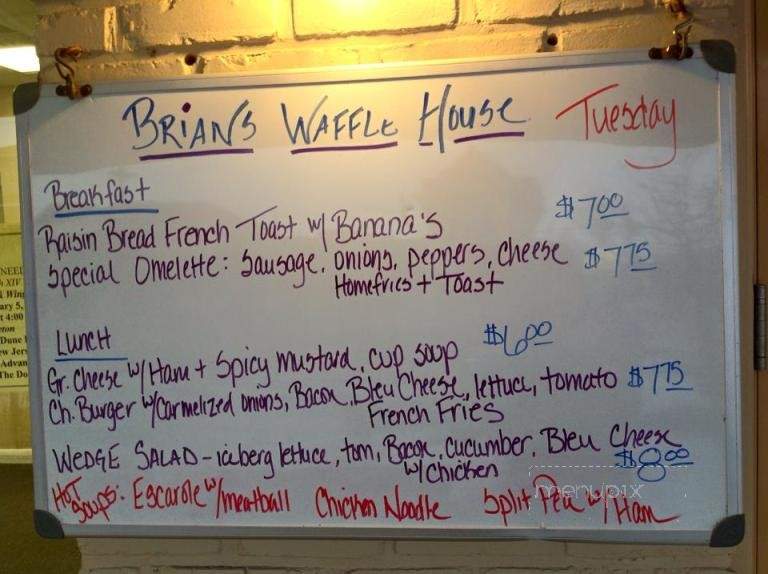 BRIANS WAFFLE HOUSE Tuesday
Breakfast
Raisin Bread French Toast w/ Banana's $7.00
Special Omelette: Sausage, onions, peppers, cheese $7.75
Homefries + Toast
Lunch
Gr. Cheese w/Ham + Spicy Mustard, cup soup $6.00
Ch. Burger w/Carmelized onions, Bacon, Bleu Cheese, lettuce, tomato $7.75
French Fries
WEDGE SALAD - iceberg lettuce, tom, Bacon, cucumber, Bleu Cheese
w/Chicken $8.00
Hot Soups: Escarole w/meatball Chicken Noodle Split Pea w/ Ham
menupix
NEED
XIV
Win
ary 5,
t 4:00
Dune
ew Jers
Advan
The Do